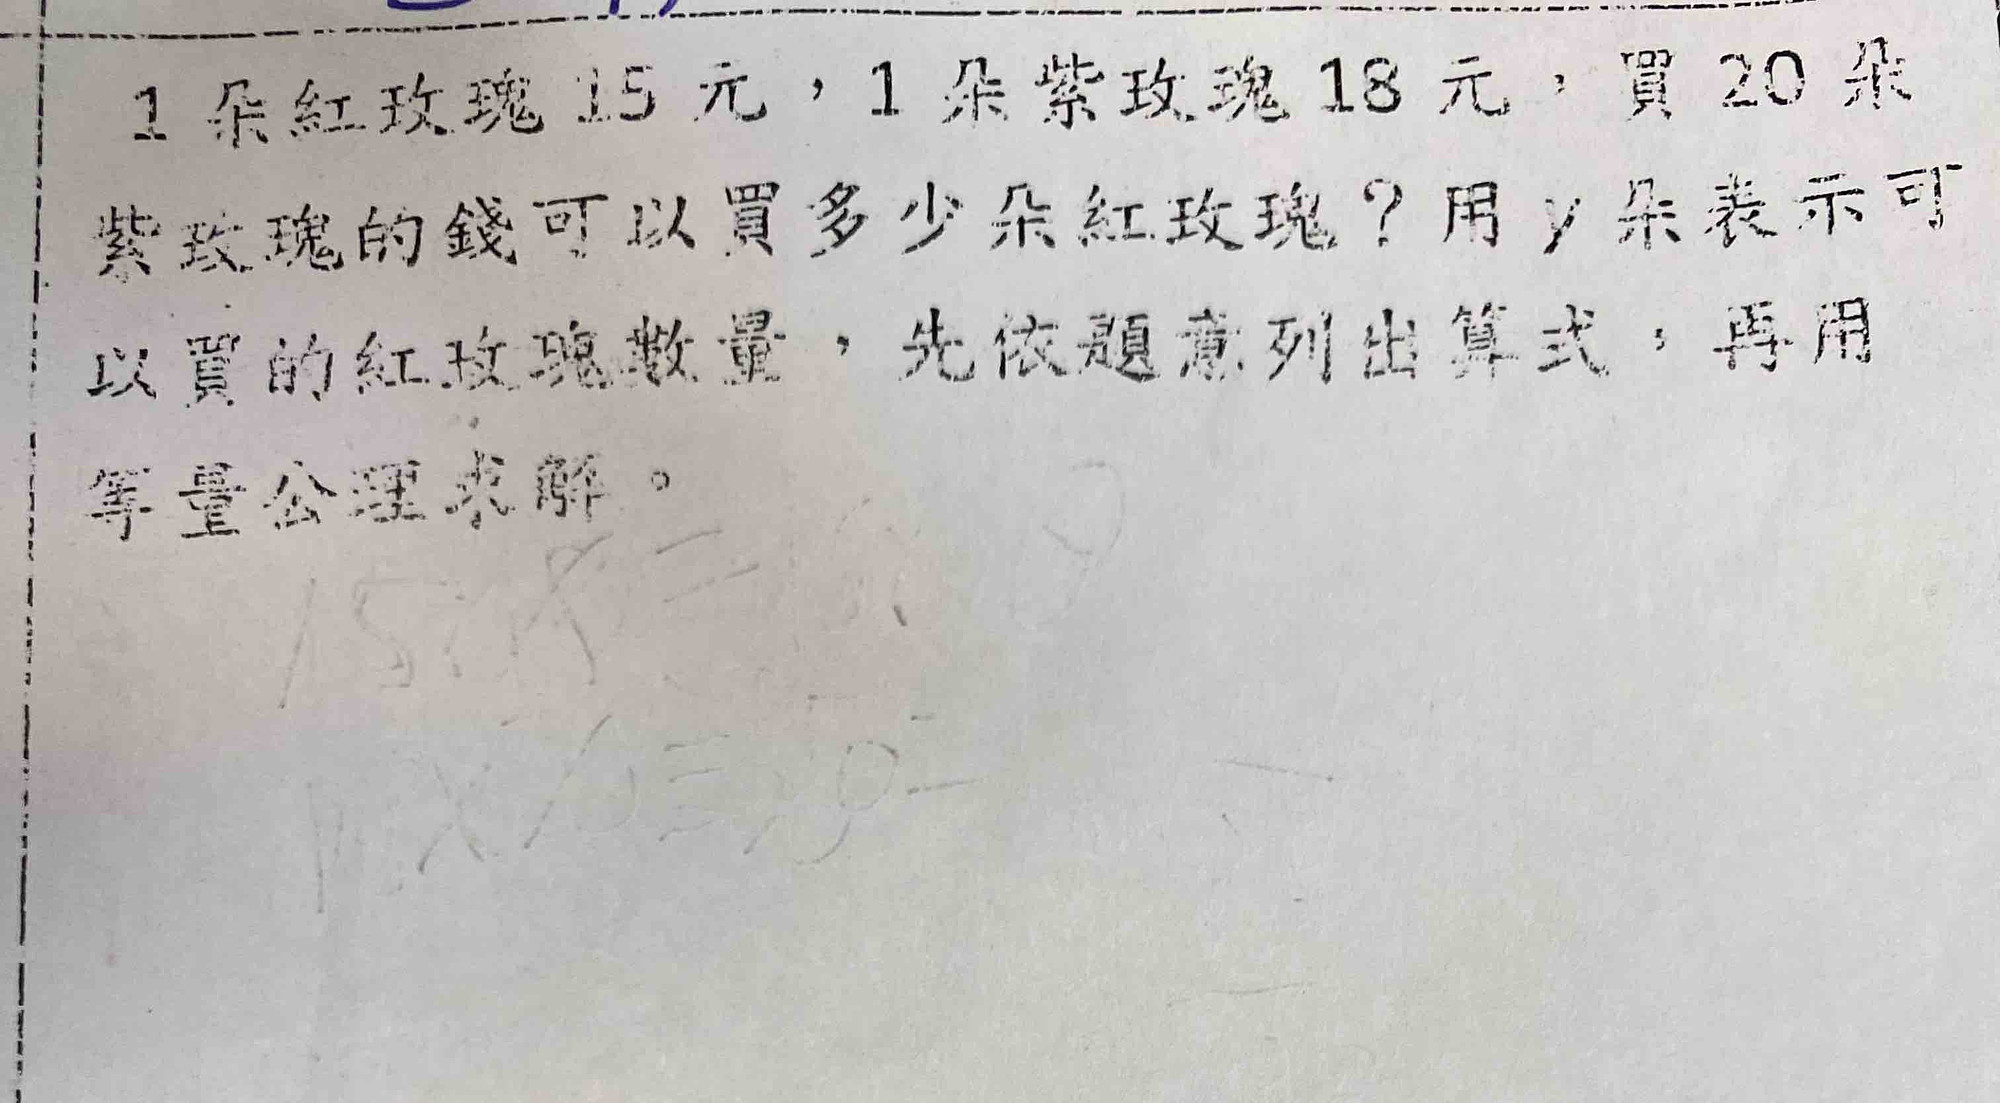 1朵紅玫瑰15元，1朵紫玫瑰18元，買20朵
紫玫瑰的錢可以買多少朵紅玫瑰？用y朵表示可
以買的紅玫瑰數量，先依題意列出算式，再用
等量公理求解。